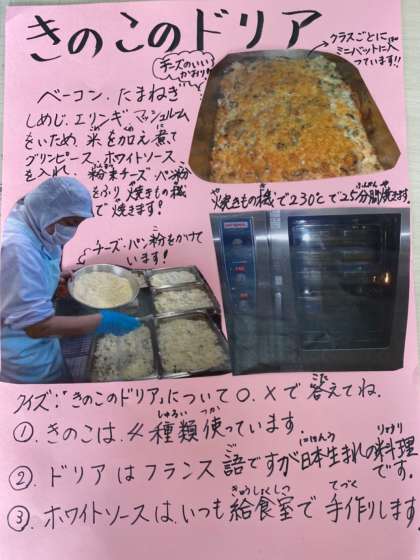 きのこのドリア
クラスごとに
ミニバットに入
っています!!
チーズのいい
かおり!
ベーコン、たまねぎ
しめじ、エリンギ、マッシュルム
をいため、米を加え煮て
グリンピース、ホワイトソース、
を入れ、粉末チーズ、パン粉
をふり、焼きもの機
で焼きます!
焼きもの機で230℃で25分間焼きます。
チーズ・パン粉をかけて
います!
クイズ:「きのこのドリア」について○、×で答えてね。
①.きのこは、4種類使っています。
②.ドリアはフランス語ですが日本生まれの料理
です。
③.ホワイトソースは、いつも給食室で手作りします。